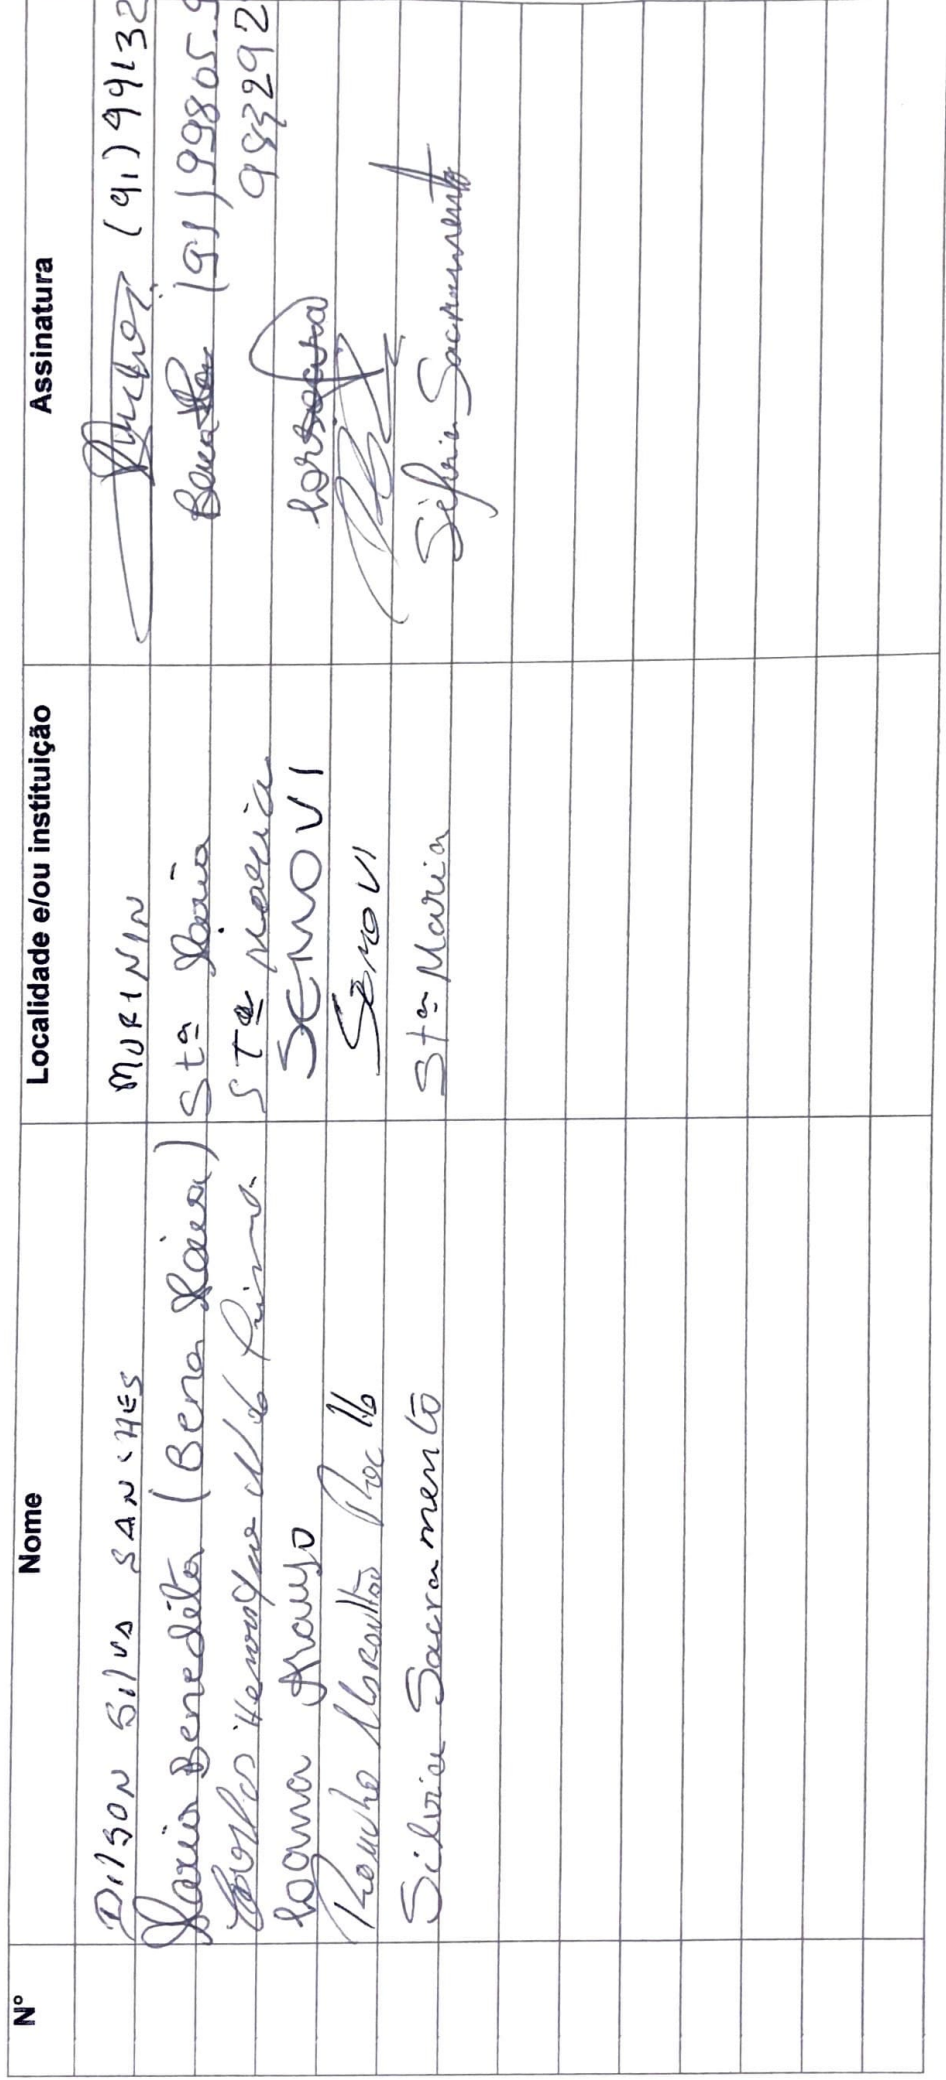 N° Nome Localidade e/ou instituição Assinatura
DilSON Silva SANCHES MURININ (91) 99132
Maria Benedita (Bena Maria) Stª Maria Bena (91) 99805.9
Carlos Henrique STª Maria 983292
Loana Araujo SEMOVI
SEMOVI
Silvia Sacramento Stª Maria Silvia Sacramento